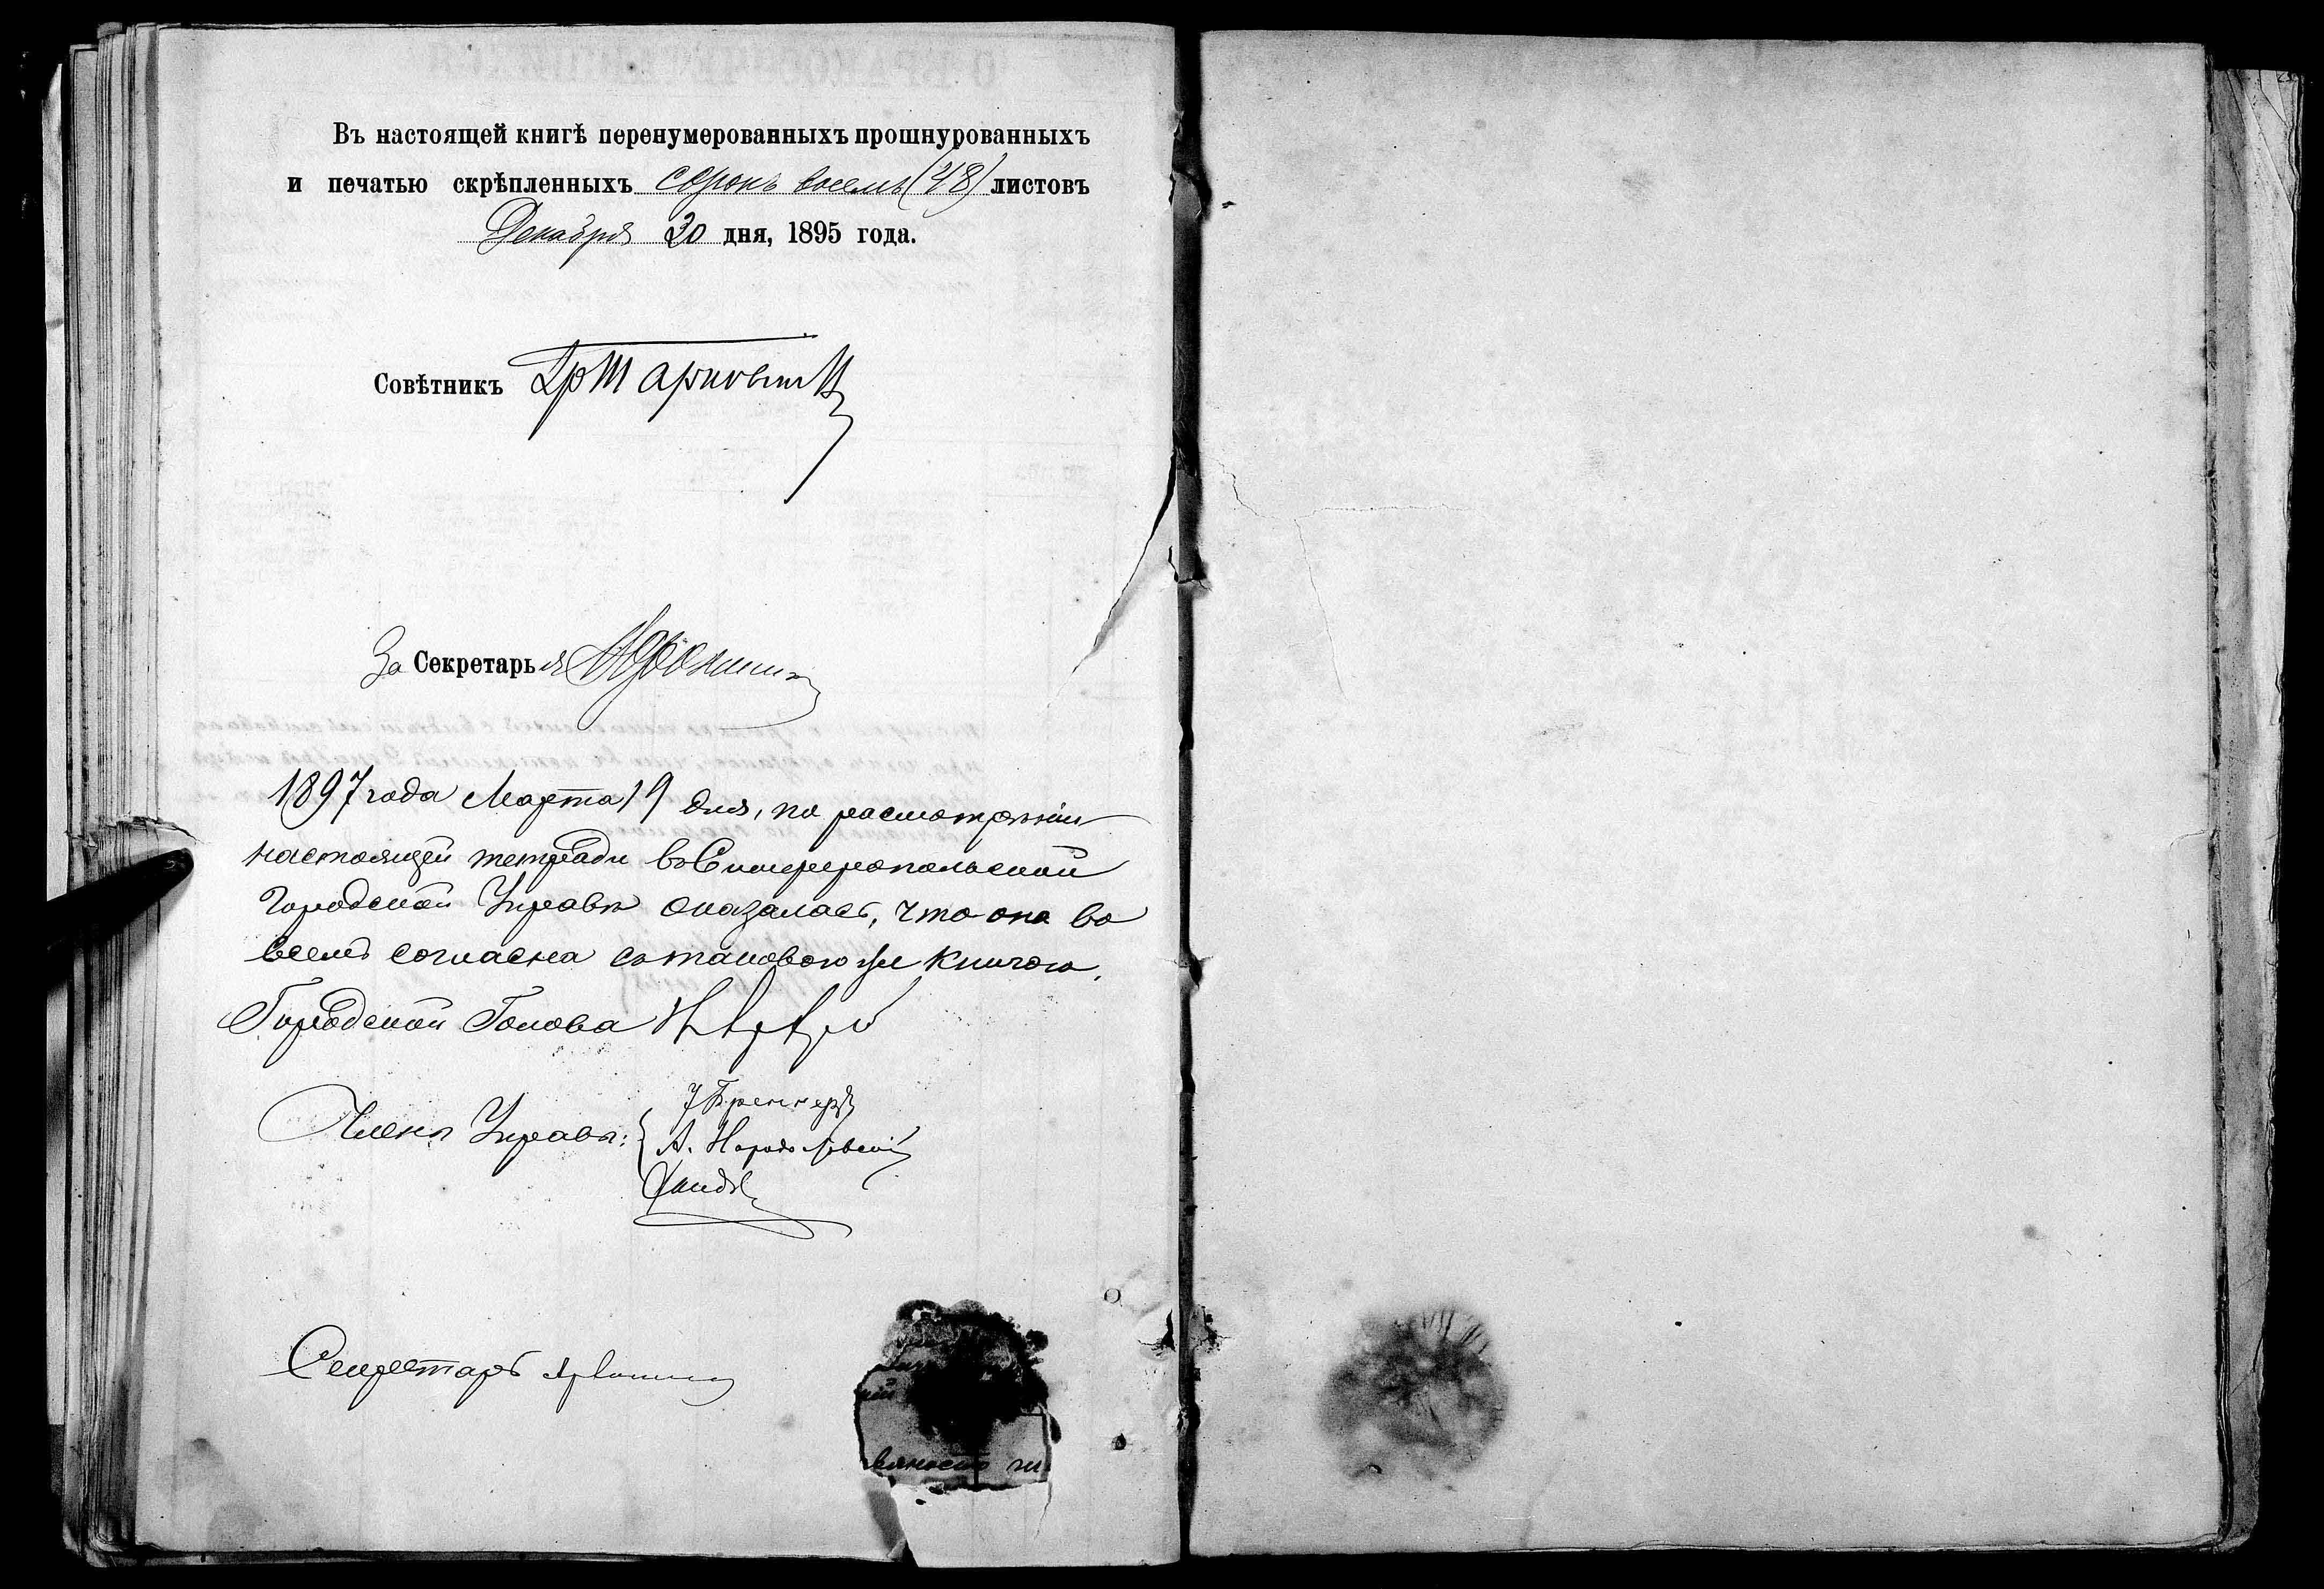 Въ настоящей книгѣ перенумерованныхъ прошнурованныхъ
и печатью скрѣпленныхъ сорокъ восемь (48) листовъ
Декабря 30 дня, 1895 года.
Совѣтникъ
За Секретаря
1897 года Марта 19 дня, по расмотрѣніи
настоящей тетради въ Симферопольской
Городской Управѣ оказалась, что она во
всемъ согласна съ таковою же книгою.
Городской Голова
Члены Управы:
А.
Секретарь